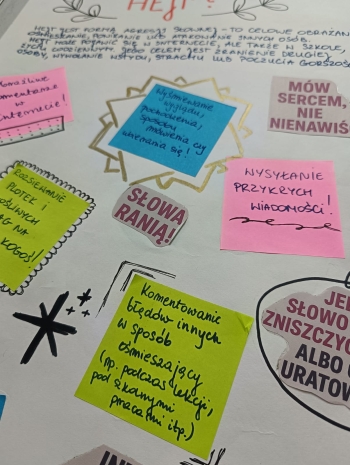 HEJT ?
HEJT JEST FORMĄ AGRESJI SŁOWNEJ - TO CELOWE OBRAŻAN
OŚMIESZANIE, PONIŻANIE LUB ATAKOWANIE INNYCH OSÓB.
HEJT MOŻE POJAWIĆ SIĘ W INTERNECIE, ALE TAKŻE W SZKOLE,
ŻYCIU CODZIENNYM. JEGO CELEM JEST ZRANIENIE DRUGIEJ
OSOBY, WYWOŁANIE WSTYDU, STRACHU LUB POCZUCIA GORSZOŚ
ośliwe
komentarze
w
internecie!
Wyśmiewanie
wyglądu,
pochodzenia,
sposobu
mówienia czy
ubierania się!
MÓW
SERCEM,
NIE
NIENAWIŚ
ROZSIEWANIE
PLOTEK I
OŚLIWYCH
NA
KOGOŚ!
SŁOWA
RANIĄ!
WYSYŁANIE
PRZYKRYCH
WIADOMOŚCI!
Komentowanie
błędów innych
w sposób
ośmieszający
(np. podczas lekcji,
pod szkolnymi
pracami itp.)
JED
SŁOWO
ZNISZCZY
ALBO
URATOW